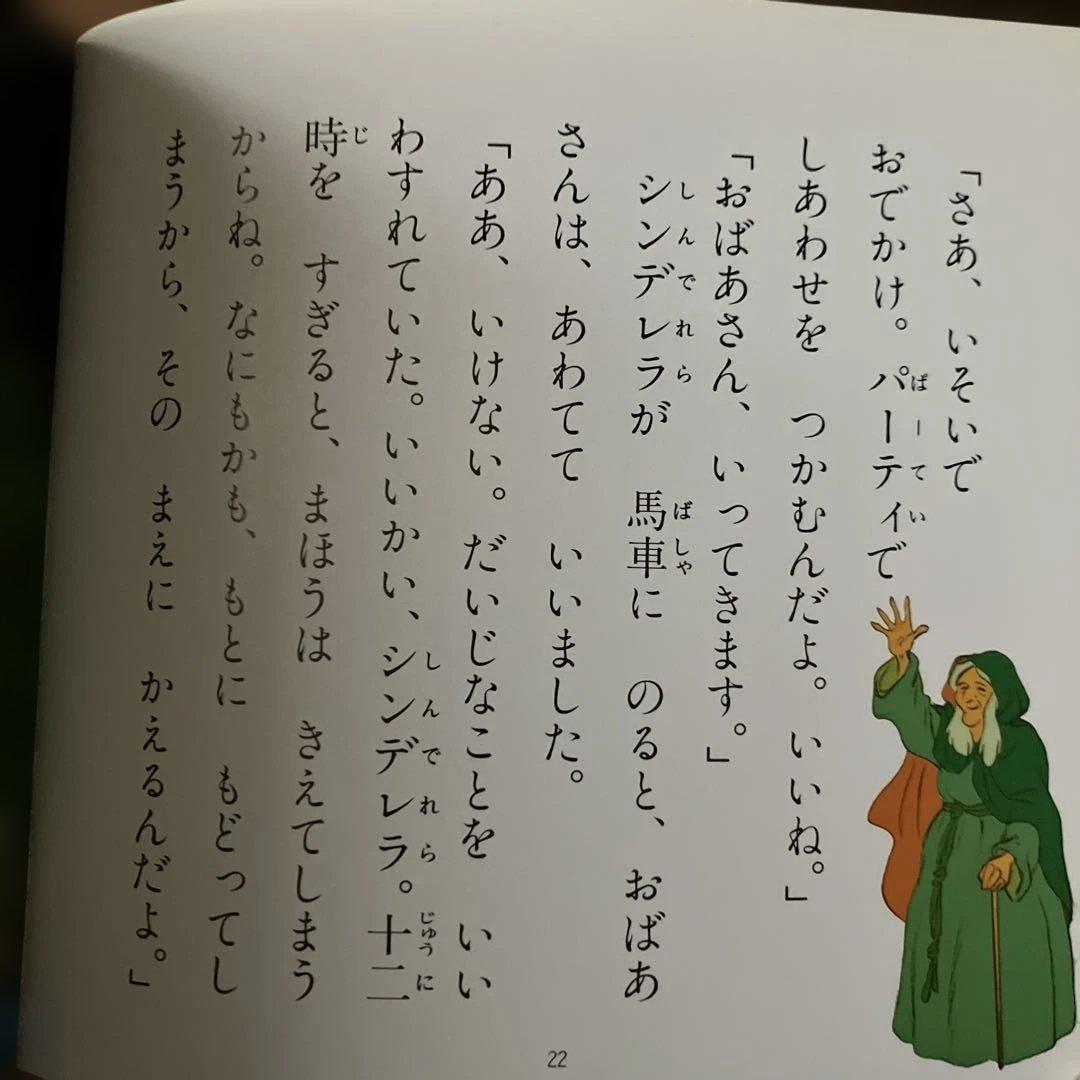 「さあ、いそいで
おでかけ。パーティで
しあわせを　つかむんだよ。いいね。」
「おばあさん、いってきます。」
シンデレラが　馬車に　のると、おばあ
さんは、あわてて　いいました。
「ああ、いけない。だいじなことを　いい
わすれていた。いいかい、シンデレラ。十二
時を　すぎると、まほうは　きえてしまう
からね。なにもかも、もとに　もどってし
まうから、その　まえに　かえるんだよ。」
22